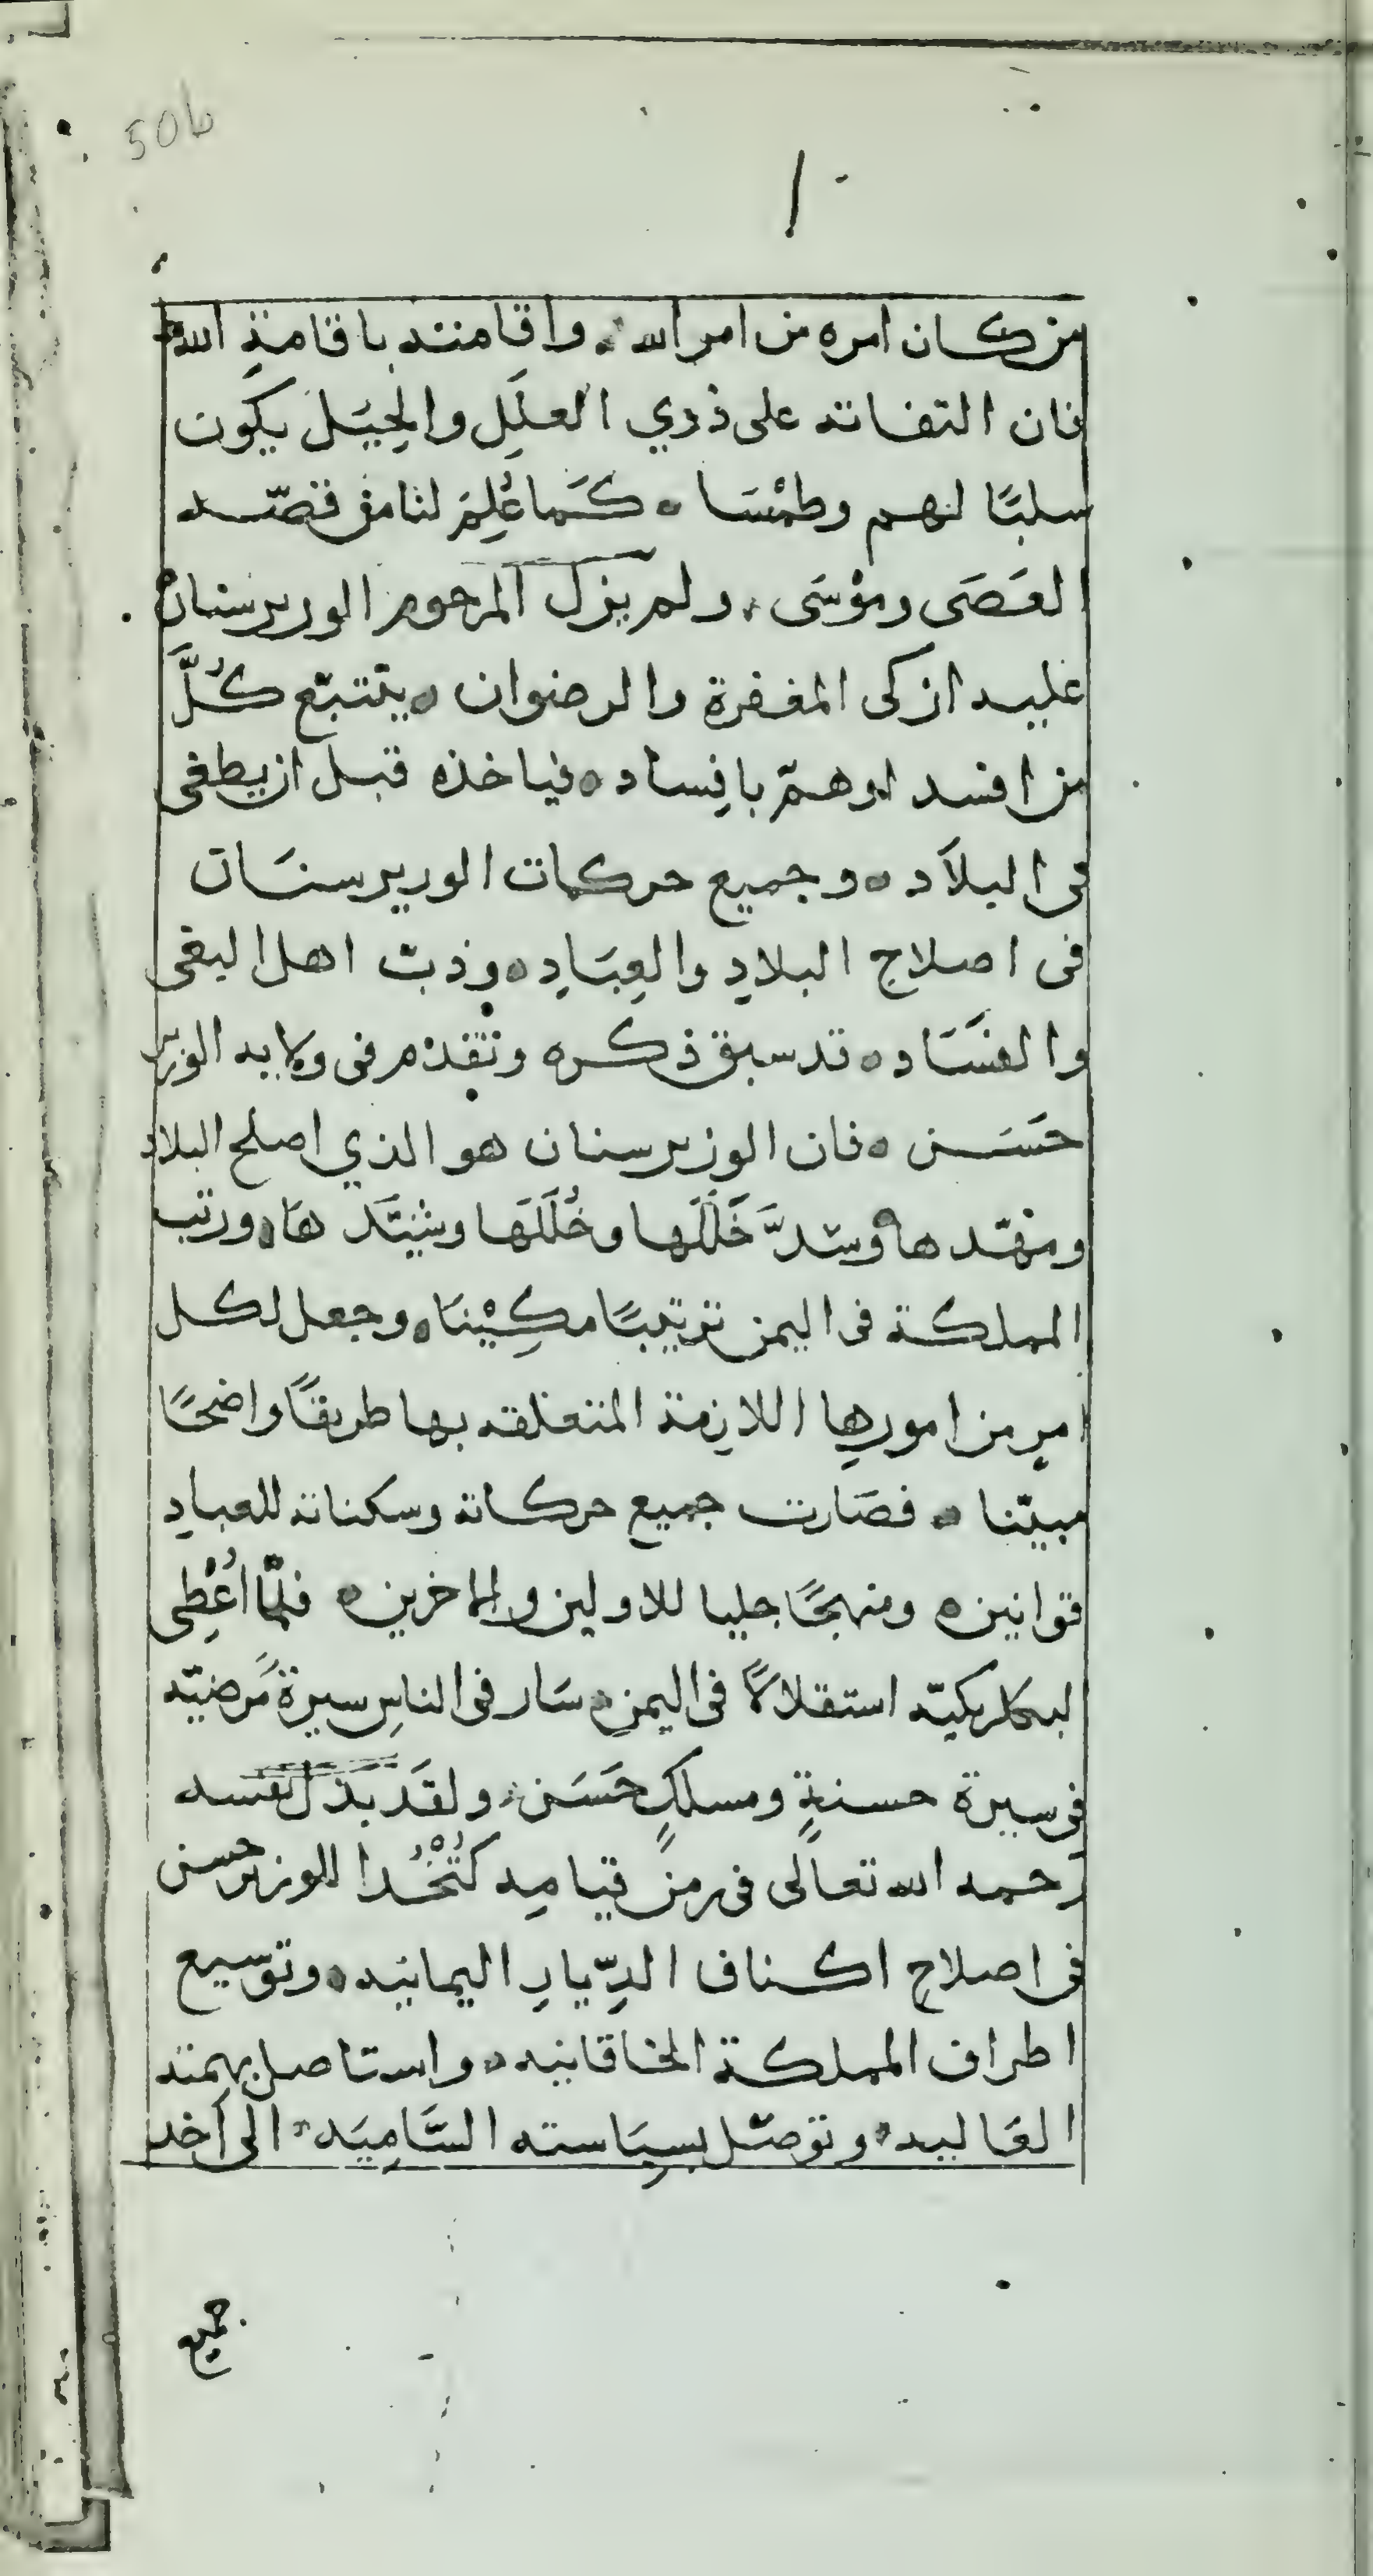 50b
من كان امره من امر الله واقامته باقامة الله
فان التفاته على ذوي العلل والحيل يكون
سلبًا لهم وطمسا ه كما عُلِمَ لنا من قصّه
العَصَى وموسَى، ولم يزل المرحوم الوزير سنان
عليه ازكى المغفرة والرضوان ه يتتبّع كُلَّ
من افسد اوهمّ بافساد ه فياخذه قبل ان يطغى
فى البلاد ه وجميع حركات الوزير سنان
فى اصلاح البلادِ والعِبَادِ ه وذبّ اهل البغى
والفسَاد ه قد سبق ذكره وتقدّم فى ولايه الوزير
حَسَن ه فان الوزير سنان هو الذي اصلح البلاد
ومهّدها وسدَّ خَلَلَها وخُلَلَها وشيَّدَ هَا ه ورتب
المملكة فى اليمن ترتيبًا مكِيْنَا ه وجعل لكل
امرٍ من امورِها اللازِمة المتعلقه بها طريقًا واضحًا
مبيّنا ه فصَارت جميع حركاته وسكناته للعبادِ
قوانين ه ومنهجًا جليا للاولين والاخرين ه فلمّا اُعْطِى
لبكلربكيّه استقلالاً فى اليمنِ ه سَار فى الناسِ سيرة مَرضيّه
فى سيرة حسنةٍ ومسلكٍ حَسَن، ولقَد بذل نفسه
رحمه الله تعالى فى زمن قيامِه كُتْخُدا للوزير حسن
فى اصلاحِ اكناف الدِّيارِ اليمانيه ه وتوْسيع
اطراف المملكة الخاقانيه ه واستاصل بهمته
العَاليه ه وتوصّل بسِيَاسته السَّامِيَه الى اخد
جميع